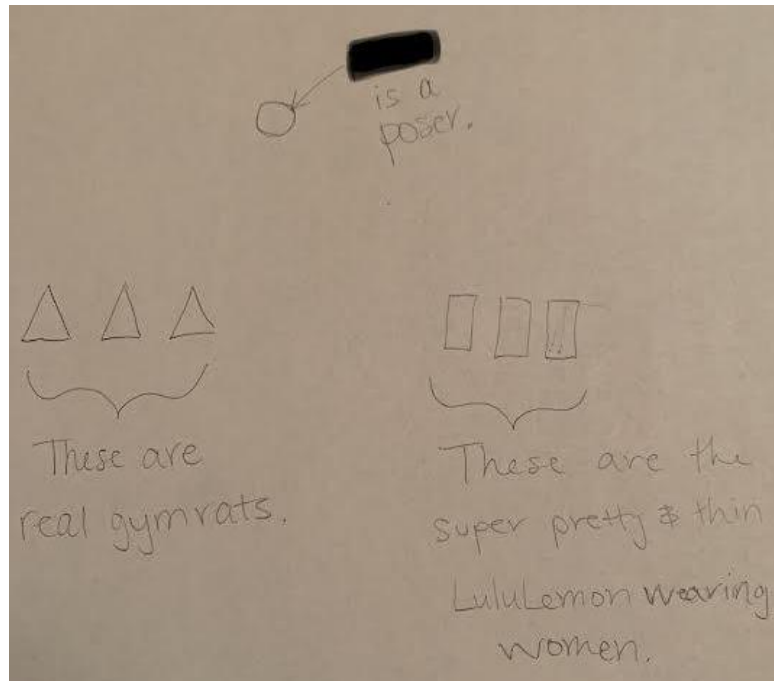 is a
poser.
These are
real gymrats.
These are the
super pretty & thin
LuluLemon wearing
women.